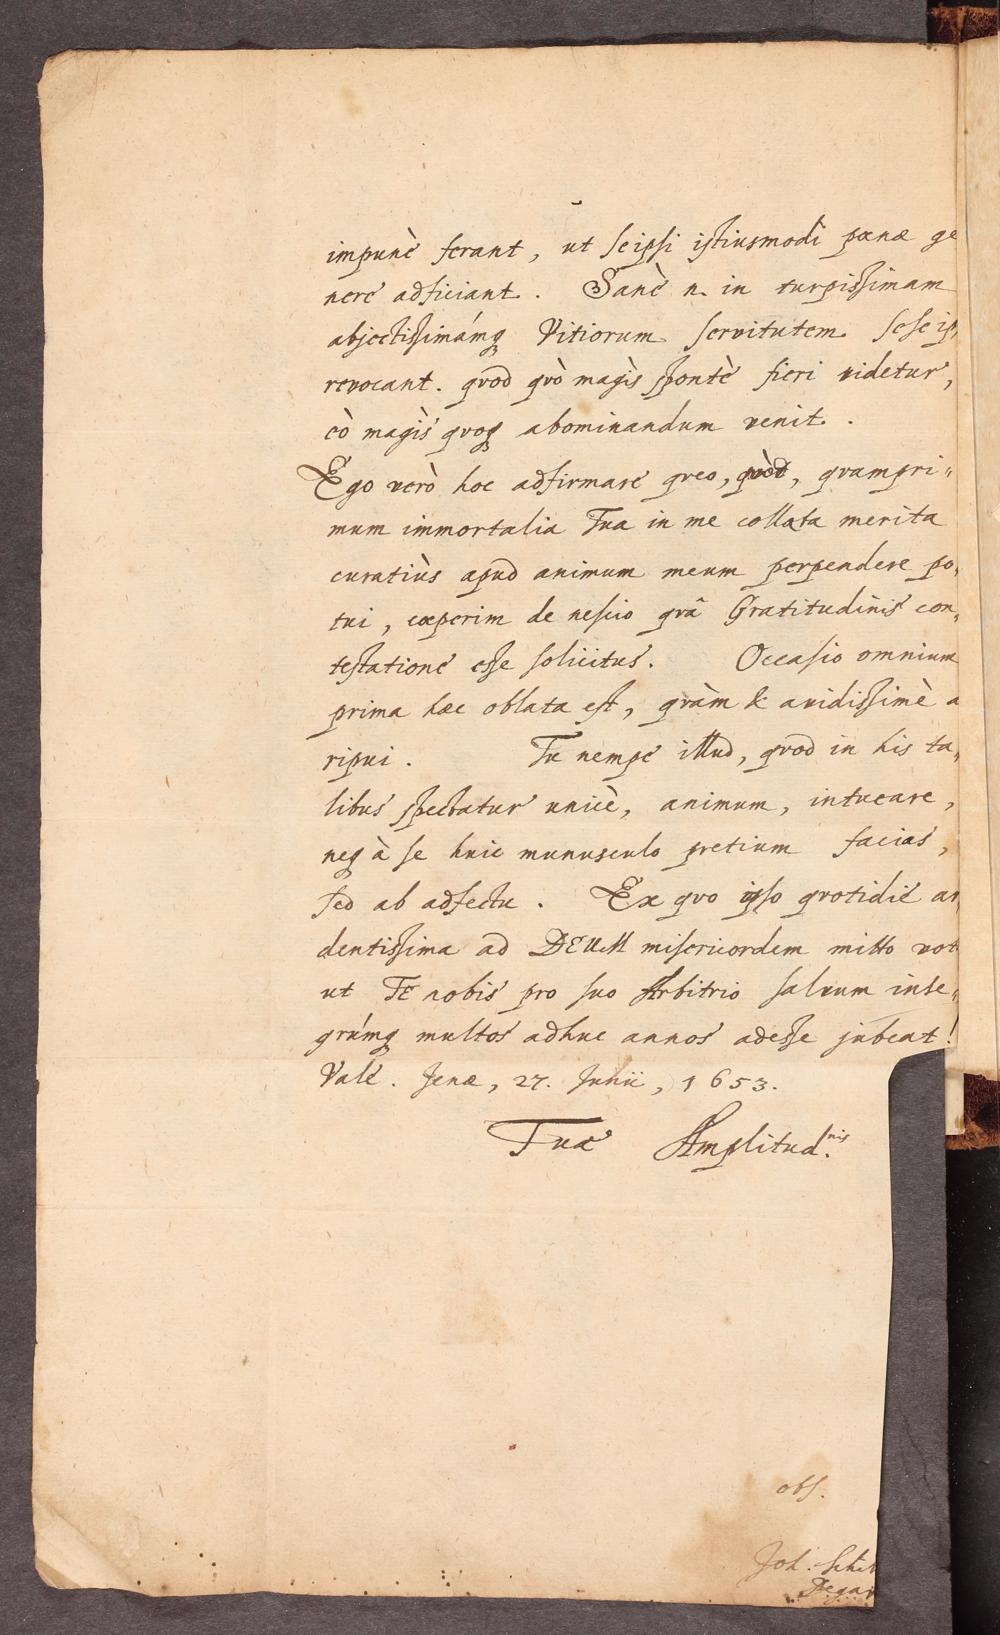 impunè ferant, ut seipsi istiusmodi pœnæ ge
nere adficiant. Sanè n. in turpissimam
abjectissimámq Vitiorum servitutem sese ip
revocant. qvod qvò magìs spontè fieri videtur,
eò magìs qvoq abominandum venit.
Ego verò hoc adfirmare qveo, qvòd, qvampri-
mum immortalia Tua in me collata merita
curatiùs apud animum meum perpendere po-
tui, cœperim de nescio qvâ Gratitudinis con-
testatione esse solicitus. Occasio omnium
prima hæc oblata est, qvàm & avidissimè a
ripui. Tu nempe illud, qvod in his ta-
libus spectatur unicè, animum, intueare,
neq à se huic munusculo pretium facias,
sed ab adfectu. Ex qvo ipso qvotidiè ar
dentissima ad DEUM misericordem mitto vot
ut TE nobis pro suo Arbitrio salvum inte-
grúmq multos adhuc annos adesse jubeat!
Vale. Jenæ, 27. Junii, 1653.
Tuæ Amplitud.nis
obs.
Joh.